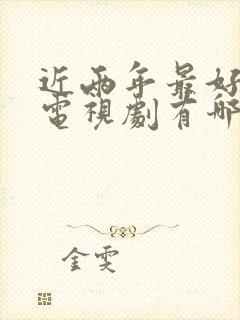 近兩年最好
電視劇有哪
金雯